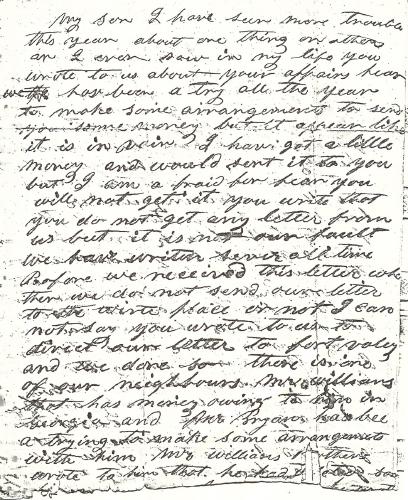 My son I have seen more trouble
this year about one thing on other
an I ever saw in my life you
wrote to us about your affairs hear
we has been a try all the year
to make some arrangements to send
you some money but it appear like
it is in vain I have got a little
money and would sent it to you
but I am a fraid for fear you
will not get it you write that
you do not get any letter from
us but it is not our fault
we have writen sever all time
Before we received this letter
then we do not send our letter
to the write place or not I can
not say you wrote to us to
direct our letter to fort valey
and we done so there is one
of our neighbours Mr Williams
that has money owing to him in
Georgia and Mr Bryan has bee
a trying to make some arrangement
with him Mr Williams
wrote to him that he had